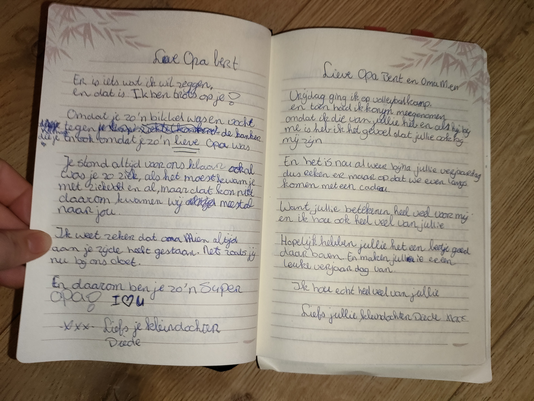 Lieve Opa bert
Er is iets wat ik wil zeggen,
en dat is Ik ben trots op je
Omdat je zo'n bikkel was en vocht
tegen de kanker
En ook omdat je zo'n lieve Opa was.
Je stond altijd voor ons klaar ookal
was je zo ziek, als het moest kwam je
met ziekte en al, maar dat kon niet
daarom kwamen wij meestal
naar jou.
Ik weet zeker dat oma Mien altijd
aan je zijde heeft gestaan. Net zoals jij
nu bij ons doet.
En daarom ben je zo'n Super
opa! I ♡ U
-x-x-x- Liefs je kleindochter
Lieve Opa Bert en Oma Mien
Vrijdag ging ik op volleybalkamp
en toen heb ik konijn meegenomen
omdat ik die van jullie heb en als hij bij
me is heb ik het gevoel dat jullie ook bij
mij zijn
En het is nu al weer bijna jullie verjaardag
dus reken er maar op dat we even langs
komen met een cadeau
Want jullie betekenen heel veel voor mij
en ik hou ook heel veel van jullie
Hopelijk hebben jullie het een beetje goed
daar boven. En maken jullie er een
leuke verjaardag van.
Ik hou echt heel veel van jullie
Liefs jullie kleindochter